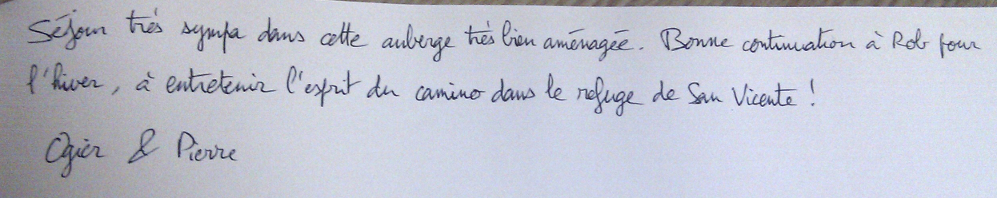 Séjour très sympa dans cette auberge très bien aménagée. Bonne continuation à Rob pour
l'hiver, à entretenir l'esprit du camino dans le refuge de San Vicente !
Ogier & Pierre